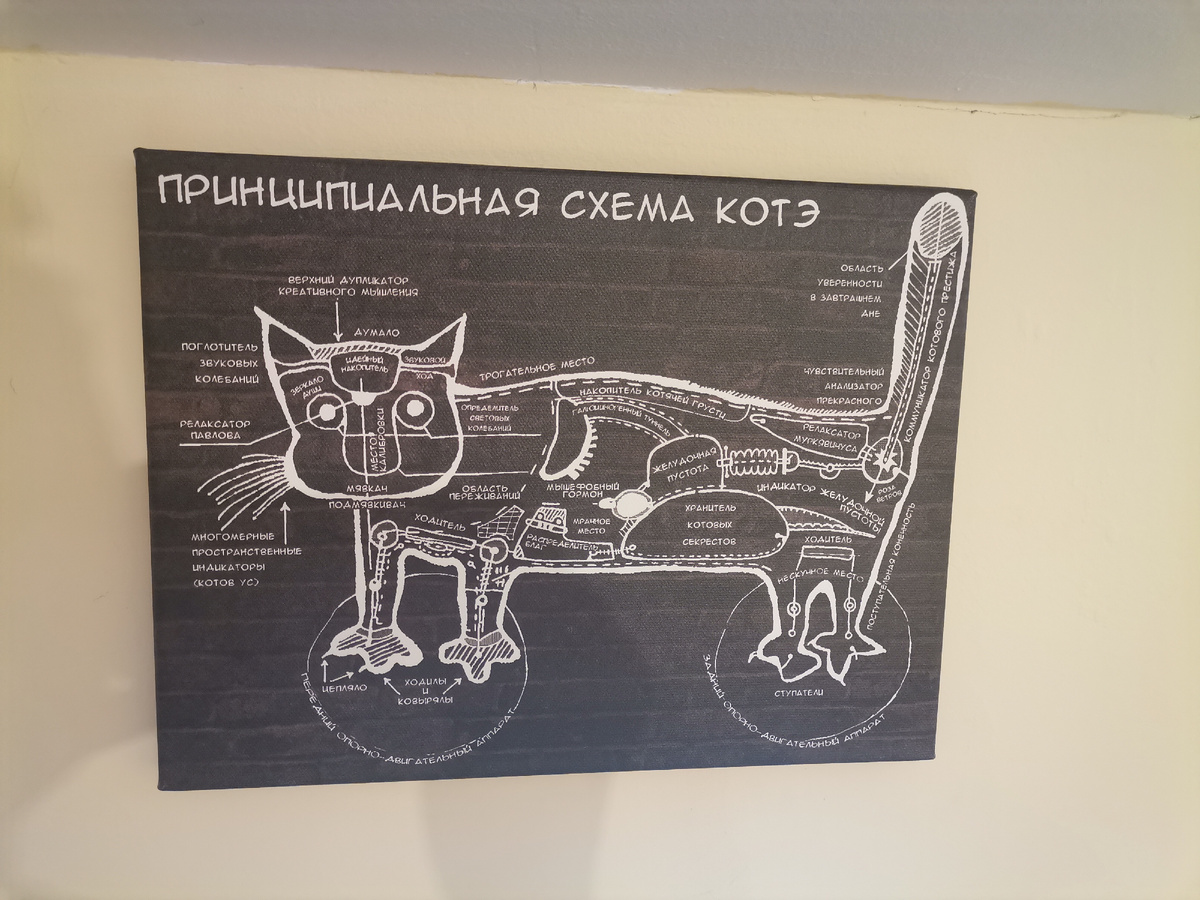 ПРИНЦИПИАЛЬНАЯ СХЕМА КОТЭ
ВЕРХНИЙ ДУПЛИКАТОР
КРЕАТИВНОГО МЫШЛЕНИЯ
ДУМАЛО
ПОГЛОТИТЕЛЬ
ЗВУКОВЫХ
КОЛЕБАНИЙ
ИДЕЙНЫЙ
НАКОПИТЕЛЬ
ЗВУКОВОЙ
ХОД
ЗЕРКАЛО
ДУШИ
РЕЛАКСАТОР
ПАВЛОВА
МЕСТО
КАЛИБРОВКИ
ОПРЕДЕЛИТЕЛЬ
СВЕТОВЫХ
КОЛЕБАНИЙ
МЯВКАЧ
ПОДМЯВКИВАЧ
МНОГОМЕРНЫЕ
ПРОСТРАНСТВЕННЫЕ
ИНДИКАТОРЫ
(КОТОВ УС)
ТРОГАТЕЛЬНОЕ МЕСТО
НАКОПИТЕЛЬ КОТЯЧЕЙ ГРУСТИ
ГАЛЮЦИНОГЕННЫЙ ТУННЕЛЬ
ОБЛАСТЬ
ПЕРЕЖИВАНИЙ
МЫШЕФОБНЫЙ
ГОРМОН
ЖЕЛУДОЧНАЯ
ПУСТОТА
МРАЧНОЕ
МЕСТО
РАСПРЕДЕЛИТЕЛЬ
БЛАГ
ХРАНИТЕЛЬ
КОТОВЫХ
СЕКРЕСТОВ
ОБЛАСТЬ
УВЕРЕННОСТИ
В ЗАВТРАШНЕМ
ДНЕ
ЧУВСТВИТЕЛЬНЫЙ
АНАЛИЗАТОР
ПРЕКРАСНОГО
КОММУНИКАТОР КОТОВОГО ПРЕСТИЖА
РЕЛАКСАТОР
МУРКЯВИЧУСА
РОЗА
ВЕТРОВ
ИНДИКАТОР ЖЕЛУДОЧНОЙ
ПУСТОТЫ
ХОДИТЕЛЬ
ХОДИТЕЛЬ
НЕСКУЧНОЕ МЕСТО
ПОСТУПАТЕЛЬНАЯ КОНЕЧНОСТЬ
ЦЕПЛЯЛО
ХОДИЛЫ
И
КОВЫРЯЛЫ
СТУПАТЕЛИ
ПЕРЕДНИЙ ОПОРНО-ДВИГАТЕЛЬНЫЙ АППАРАТ
ЗАДНИЙ ОПОРНО-ДВИГАТЕЛЬНЫЙ АППАРАТ